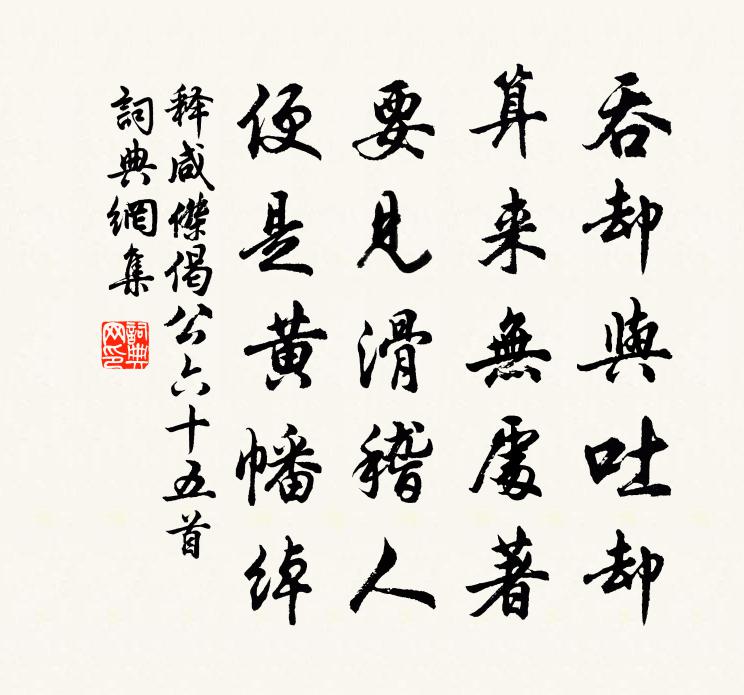 吞却與吐却
算来無處著
要見滑稽人
便是黃幡绰
释咸傑偈公六十五首
詞典網集
詞典网印